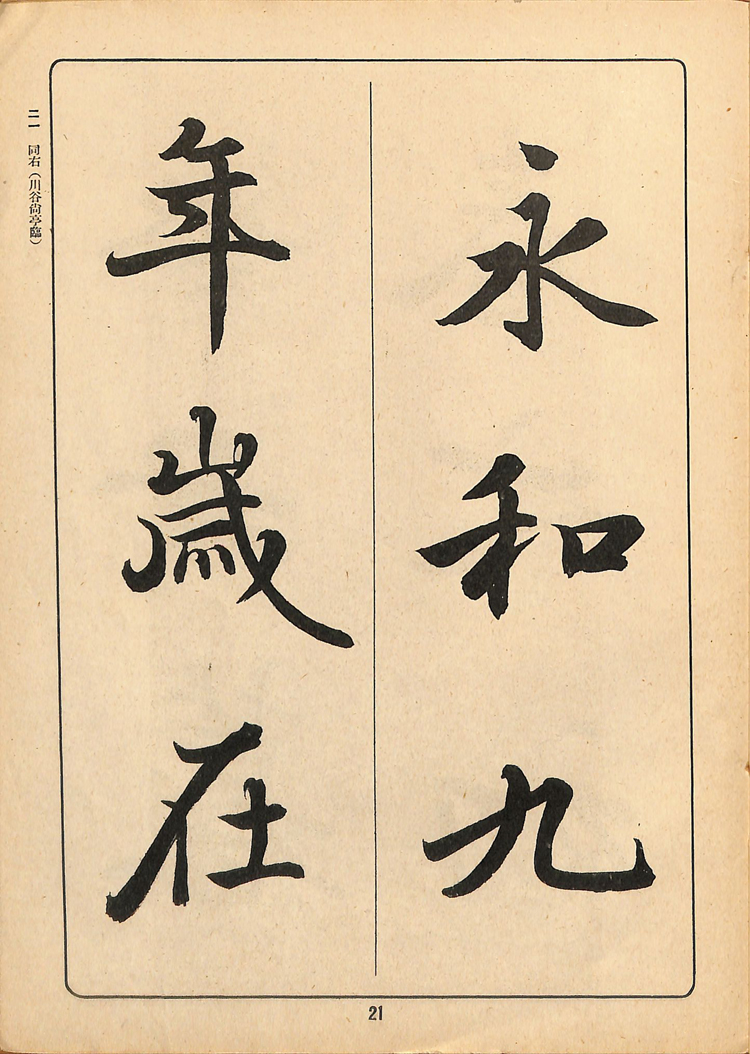 永和九
年歳在
二一 同右（川谷尙亭臨）
21